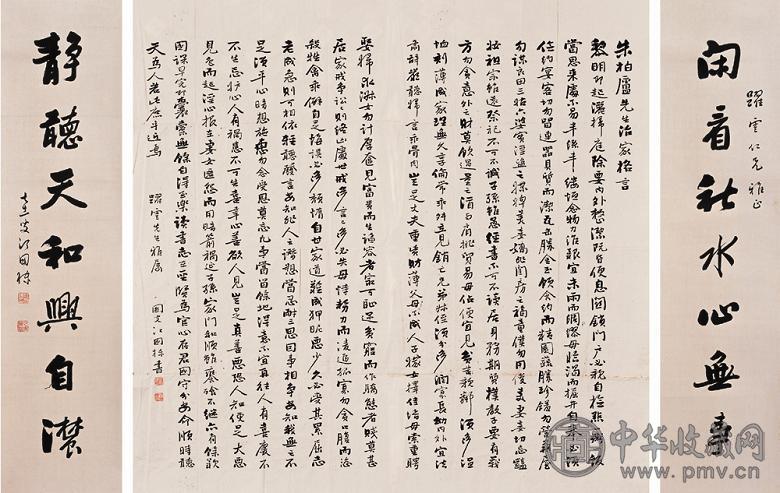 閑看秋水心無事
躍雲仁兄雅正
朱柏廬先生治家格言
黎明即起灑掃庭除要內外整潔既昏便息關鎖門戶必親自檢點一粥一飯
當思來處不易半絲半縷恒念物力維艱宜未雨而綢繆毋臨渴而掘井自奉必須
儉約宴客切勿留連器具質而潔瓦缶勝金玉飲食約而精園蔬勝珍饈勿營華屋
勿謀良田三姑六婆實淫盜之媒婢美妾嬌非閨房之福童僕勿用俊美妻妾切忌豔
妝祖宗雖遠祭祀不可不誠子孫雖愚經書不可不讀居身務期質樸教子要有義
方勿貪意外之財莫飲過量之酒與肩挑貿易毋佔便宜見貧苦親鄰須多溫
恤刻薄成家理無久享倫常乖舛立見銷亡兄弟叔侄須分多潤寡長幼內外宜法
肅辭嚴聽婦言乖骨肉豈是丈夫重資財薄父母不成人子嫁女擇佳婿毋索重聘
娶婦求淑女勿計厚奩見富貴而生諂容者最可恥遇貧窮而作驕態者賤莫甚
居家戒爭訟訟則終凶處世戒多言言多必失毋恃勢力而凌逼孤寡勿貪口腹而恣
殺牲禽乖僻自是悔誤必多頹惰自甘家道難成狎昵惡少久必受其累屈志
老成急則可相依輕聽發言安知非人之譖愬當忍耐三思因事相爭安知非我之不
是須平心暗想施惠勿念受恩莫忘凡事當留餘地得意不宜再往人有喜慶不
可生妒忌心人有禍患不可生喜幸心善欲人見豈是真善惡恐人知便是大惡
見色而起淫心報在妻女匿怨而用暗箭禍延子孫家門和順雖饔飧不繼亦有餘歡
國課早完即囊橐無餘自得至樂讀書志在聖賢為官心存君國守分安命順時聽
天為人若此庶乎近焉
躍雲先生雅屬
江國棟書
靜聽天和興自濃
江國棟
中华收藏网
www.pmv.cn